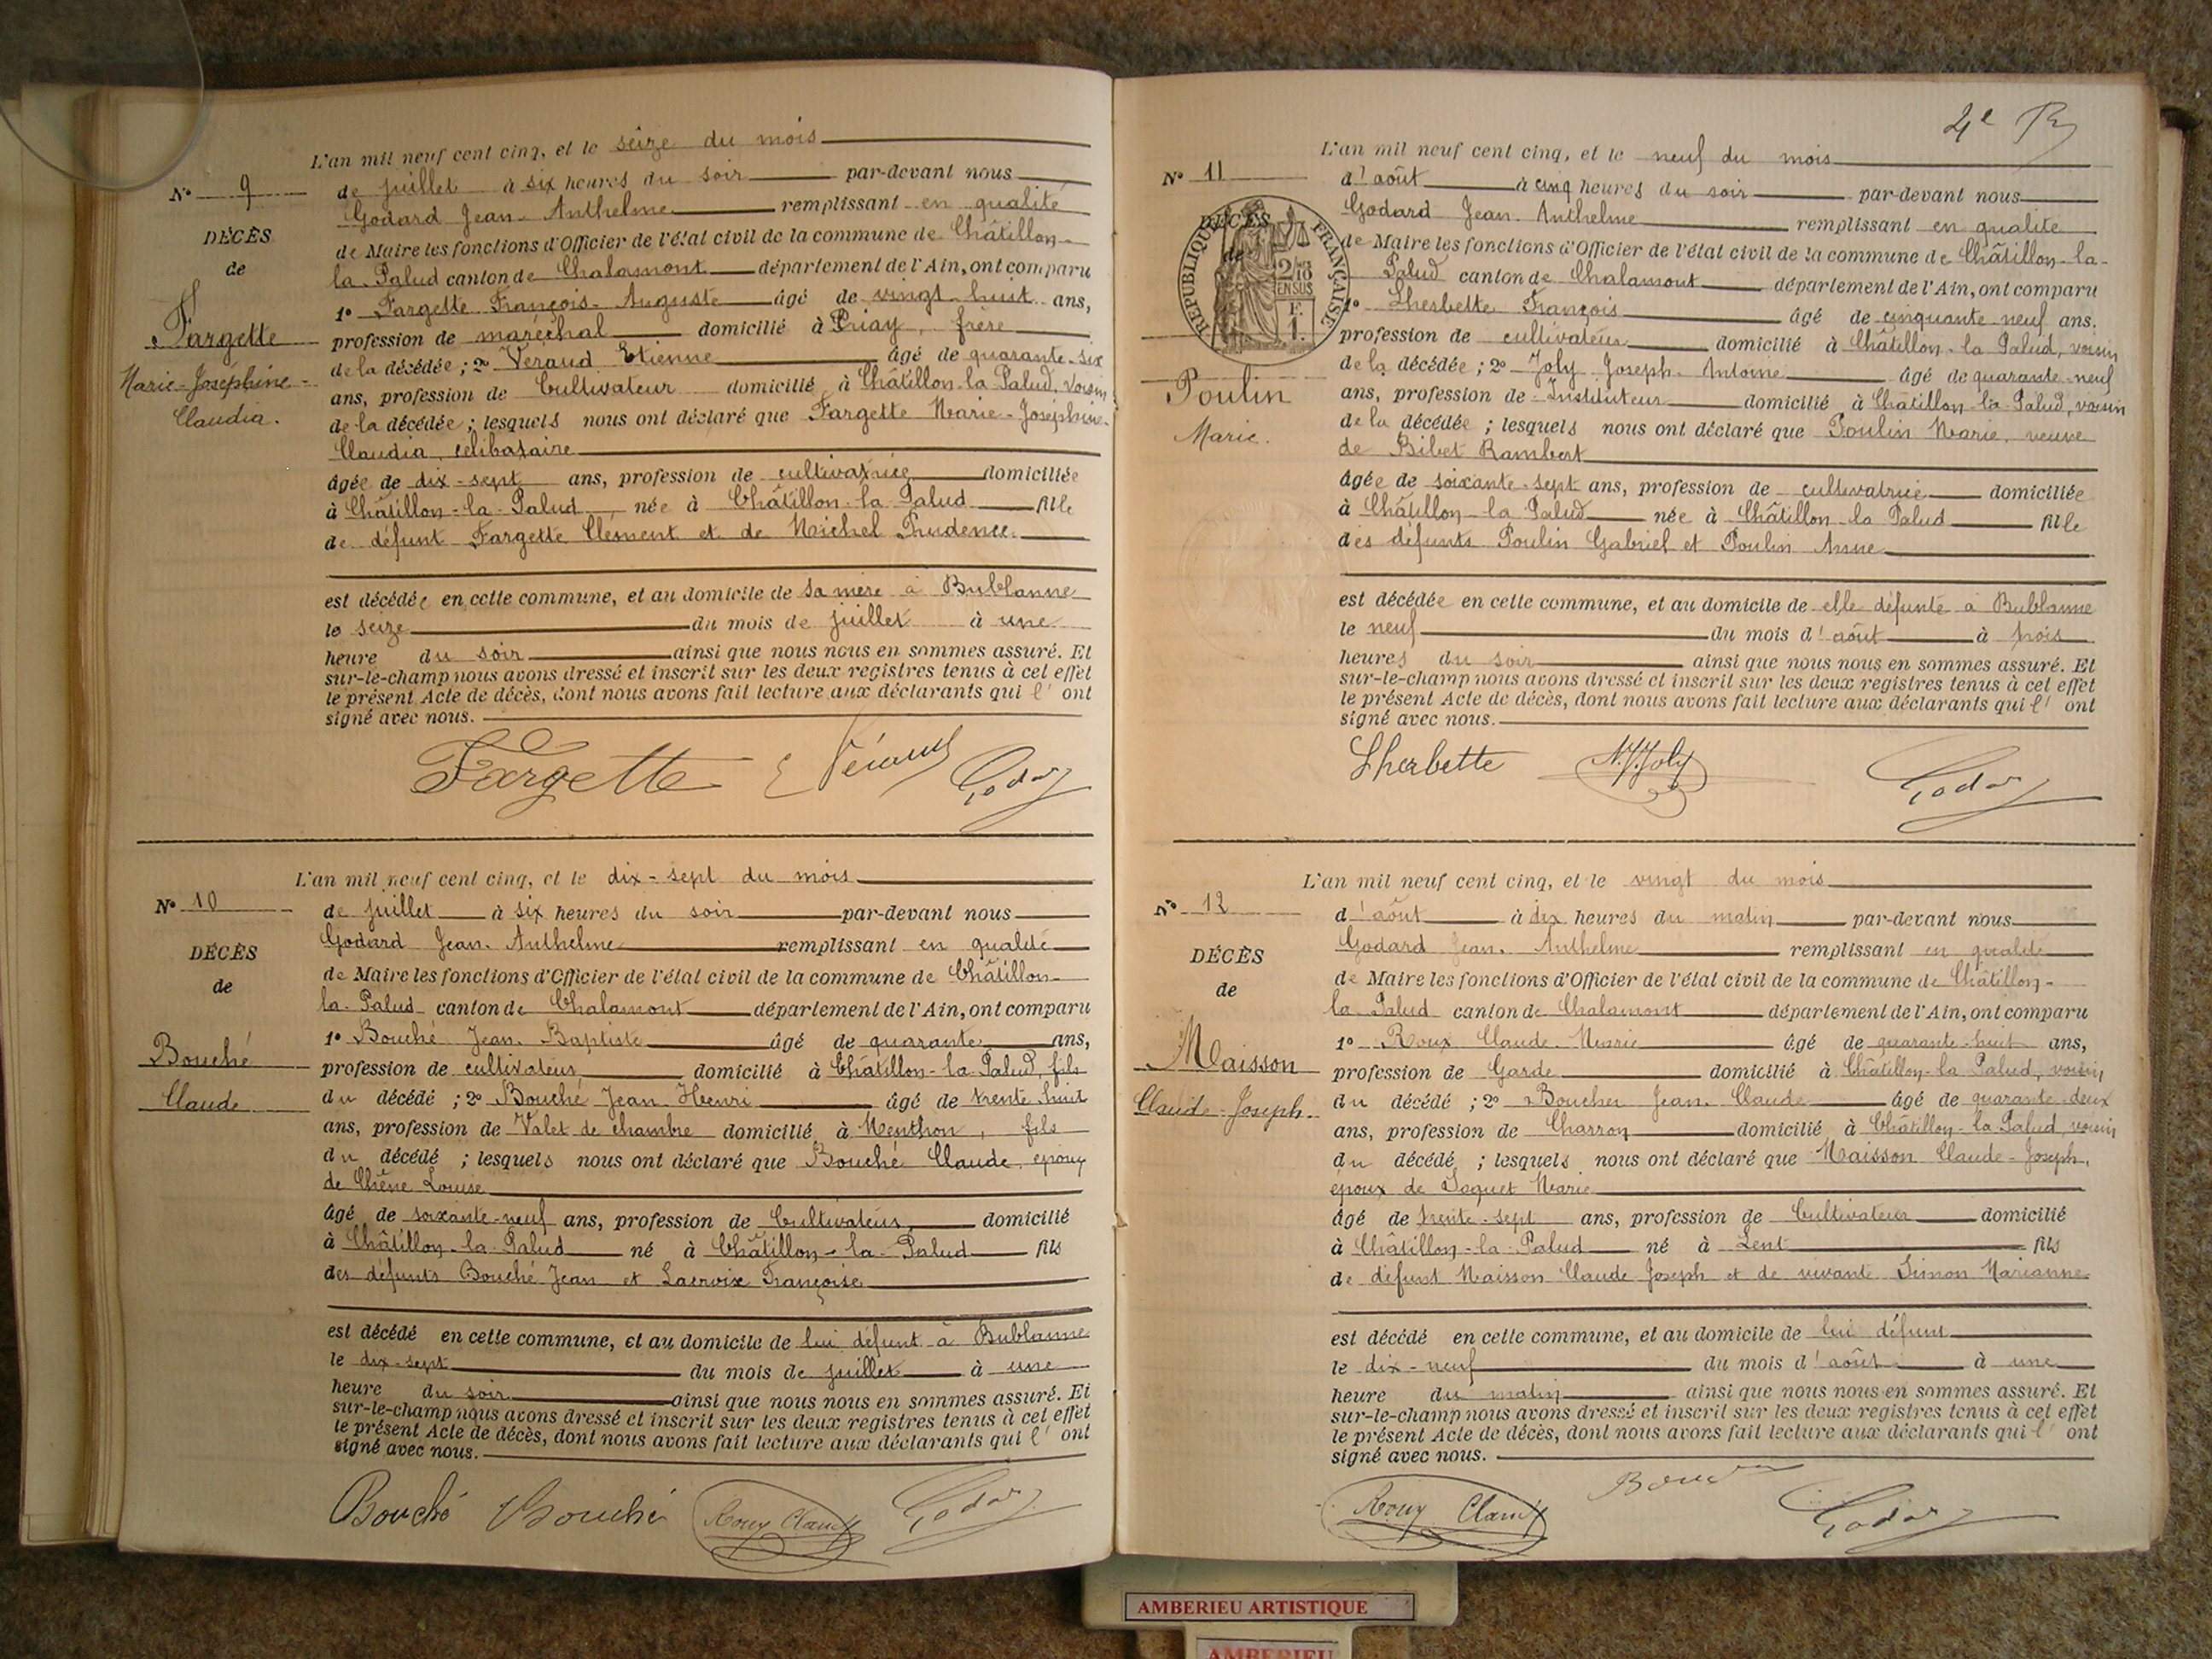 L'an mil neuf cent cinq, et le seize du mois
N° 9
de juillet à six heures du soir par-devant nous
Godard Jean-Anthelme remplissant en qualité
DÉCÈS
de Maire les fonctions d'Officier de l'état civil de la commune de Châtillon-
de
la-Palud canton de Chalamont département de l'Ain, ont comparu
1° Fargette François-Auguste âgé de vingt-huit ans,
Fargette
profession de maréchal domicilié à Priay, frère
de la décédée ; 2° Veraud Etienne âgé de quarante-six
Marie-Joséphine-
ans, profession de Cultivateur domicilié à Châtillon-la-Palud, voisin
Claudia.
de la décédée ; lesquels nous ont déclaré que Fargette Marie-Joséphine-
Claudia, célibataire
âgée de dix-sept ans, profession de cultivatrice domiciliée
à Châtillon-la-Palud née à Châtillon-la-Palud fille
de défunt Fargette Clément et de Michel Prudence.
est décédée en cette commune, et au domicile de sa mère à Bublanne
le seize du mois de juillet à une
heure du soir ainsi que nous nous en sommes assuré. Et
sur-le-champ nous avons dressé et inscrit sur les deux registres tenus à cet effet
le présent Acte de décès, dont nous avons fait lecture aux déclarants qui l' ont
signé avec nous.
Fargette E Véraud Godard
L'an mil neuf cent cinq, et le dix-sept du mois
N° 10
de juillet à six heures du soir par-devant nous
Godard Jean-Anthelme remplissant en qualité
DÉCÈS
de Maire les fonctions d'Officier de l'état civil de la commune de Châtillon-
de
la-Palud canton de Chalamont département de l'Ain, ont comparu
1° Bouché Jean-Baptiste âgé de quarante ans,
Bouché
profession de cultivateur domicilié à Châtillon-la-Palud, fils
Claude
du décédé ; 2° Bouché Jean-Henri âgé de trente-huit
ans, profession de Valet de chambre domicilié à Menthon, fils
du décédé ; lesquels nous ont déclaré que Bouché Claude, époux
de Chêne Louise
âgé de soixante-neuf ans, profession de Cultivateur, domicilié
à Châtillon-la-Palud né à Châtillon-la-Palud fils
des défunts Bouché Jean et Lacroix Françoise
est décédé en cette commune, et au domicile de lui défunt à Bublanne
le dix-sept du mois de juillet à une
heure du soir ainsi que nous nous en sommes assuré. Et
sur-le-champ nous avons dressé et inscrit sur les deux registres tenus à cet effet
le présent Acte de décès, dont nous avons fait lecture aux déclarants qui l' ont
signé avec nous.
Bouché Bouché Roux Claude Godard
4e
L'an mil neuf cent cinq, et le neuf du mois
N° 11
d'août à cinq heures du soir par-devant nous
Godard Jean-Anthelme remplissant en qualité
DÉCÈS
de
RÉPUBLIQUE FRANÇAISE
2/10 EN SUS
F. 1.
de Maire les fonctions d'Officier de l'état civil de la commune de Châtillon-la-
Palud canton de Chalamont département de l'Ain, ont comparu
1° Lherbette François âgé de cinquante-neuf ans.
profession de cultivateur domicilié à Châtillon-la-Palud, voisin
Poulin
de la décédée ; 2° Joly Joseph-Antoine âgé de quarante-neuf
ans, profession de Instituteur domicilié à Châtillon-la-Palud, voisin
Marie.
de la décédée ; lesquels nous ont déclaré que Poulin Marie, veuve
de Bibet Rambert
âgée de soixante-sept ans, profession de cultivatrice domiciliée
à Châtillon-la-Palud née à Châtillon-la-Palud fille
des défunts Poulin Gabriel et Poulin Anne
est décédée en cette commune, et au domicile de elle défunte à Bublanne
le neuf du mois d'août à trois
heures du soir ainsi que nous nous en sommes assuré. Et
sur-le-champ nous avons dressé et inscrit sur les deux registres tenus à cet effet
le présent Acte de décès, dont nous avons fait lecture aux déclarants qui l' ont
signé avec nous.
Lherbette Joly Godard
L'an mil neuf cent cinq, et le vingt du mois
N° 12
d'août à dix heures du matin par-devant nous
Godard Jean-Anthelme remplissant en qualité
DÉCÈS
de Maire les fonctions d'Officier de l'état civil de la commune de Châtillon-
de
la-Palud canton de Chalamont département de l'Ain, ont comparu
1° Roux Claude-Marie âgé de quarante-huit ans,
Maisson
profession de Garde domicilié à Châtillon-la-Palud, voisin
Claude-Joseph.
du décédé ; 2° Boucher Jean-Claude âgé de quarante-deux
ans, profession de Charron domicilié à Châtillon-la-Palud, voisin
du décédé ; lesquels nous ont déclaré que Maisson Claude-Joseph,
époux de Joquet Marie
âgé de trente-sept ans, profession de Cultivateur domicilié
à Châtillon-la-Palud né à Lent fils
de défunt Maisson Claude Joseph et de vivante Simon Marianne
est décédé en cette commune, et au domicile de lui défunt
le dix-neuf du mois d'août à une
heure du matin ainsi que nous nous en sommes assuré. Et
sur-le-champ nous avons dressé et inscrit sur les deux registres tenus à cet effet
le présent Acte de décès, dont nous avons fait lecture aux déclarants qui l' ont
signé avec nous.
Roux Claude Boucher Godard
AMBERIEU ARTISTIQUE
AMBERIEU